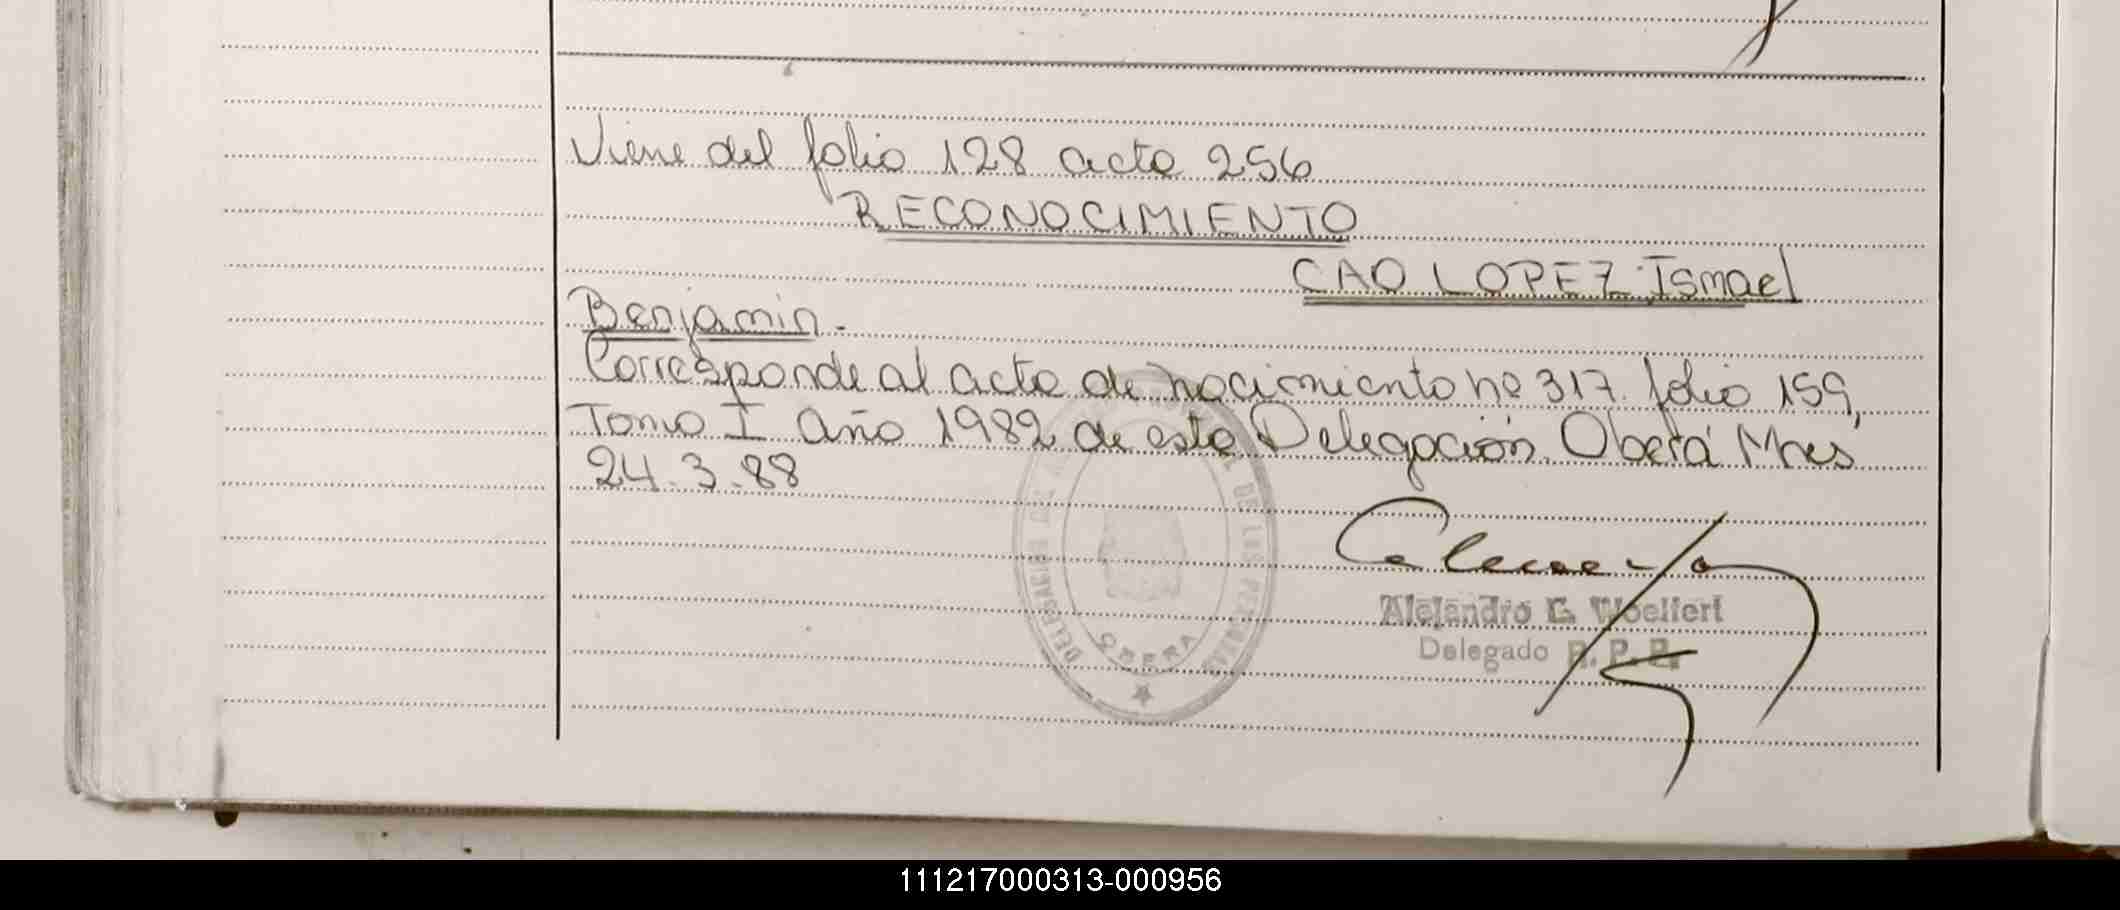 Viene del folio 128 acta 256
RECONOCIMIENTO
CAO LOPEZ Ismael
Benjamin.-
Corresponde al acta de nacimiento nº 317 folio 159,
Tomo I Año 1982 de esta Delegación. Oberá Mnes
24.3.88
DE LAS PERSONAS
OBERA
Alejandro G. Woelfert
Delegado R. P. P.
111217000313-000956